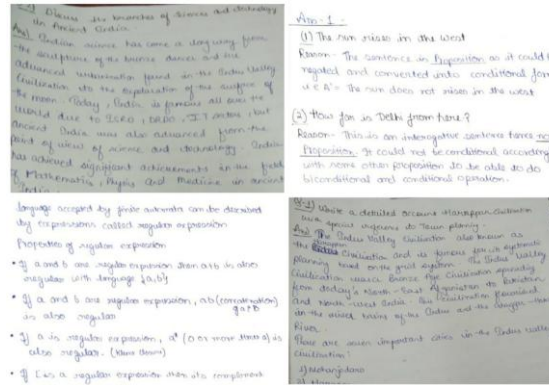 Discuss the branches of Science and technology
in Ancient India.
Ans) Indian science has come a long way from
the sculptures of the bronze dancer and the
advanced urbanisation found in the Indus Valley
Civilisation to the exploration of the surface of
the moon. Today, India is famous all over the
world due to ISRO, DRDO, IIT sectors, but
ancient India was also advanced from the
point of view of science and technology. India
has achieved significant achievements in the field
of Mathematics, Physics and Medicine in ancient
India.
Ans-1.
(1) The sun rises in the west
Reason- The sentence is Proposition as it could
negated and converted into conditional for
The sun does not rises in the west
(2) How far is Delhi from here?
Reason- This is an interogative sentence hence no
Proposition. It could not be conditional according
with some other proposition to be able to do
biconditional and conditional operation.
language accepted by finite automata can be described
by expressions called regular expression
Properties of regular expression
• If a and b are regular expression then a+b is also
regular with language {a,b}
• If a and b are regular expression, ab (concatenation)
is also regular
• If a is regular expression, a* (0 or more times) is
also regular. (Kleene
• If L is a regular expression then its complement
Q-1) Write a detailed account Harappan Civilisation
with special reference to Town planning.
Ans) The Indus Valley Civilisation also known as
the Harappan Civilisation and is famous for its systematic
planning based on the grid system. The Indus Valley
Civilisation was a Bronze Age Civilisation spreading
from today's North-East Afganistan to Pakistan
and North-west India. This civilisation flourished
in the river basins of the Indus and the
River.
There are seven important cities in the Indus Valley
Civilisation:
1) Mohenjodaro